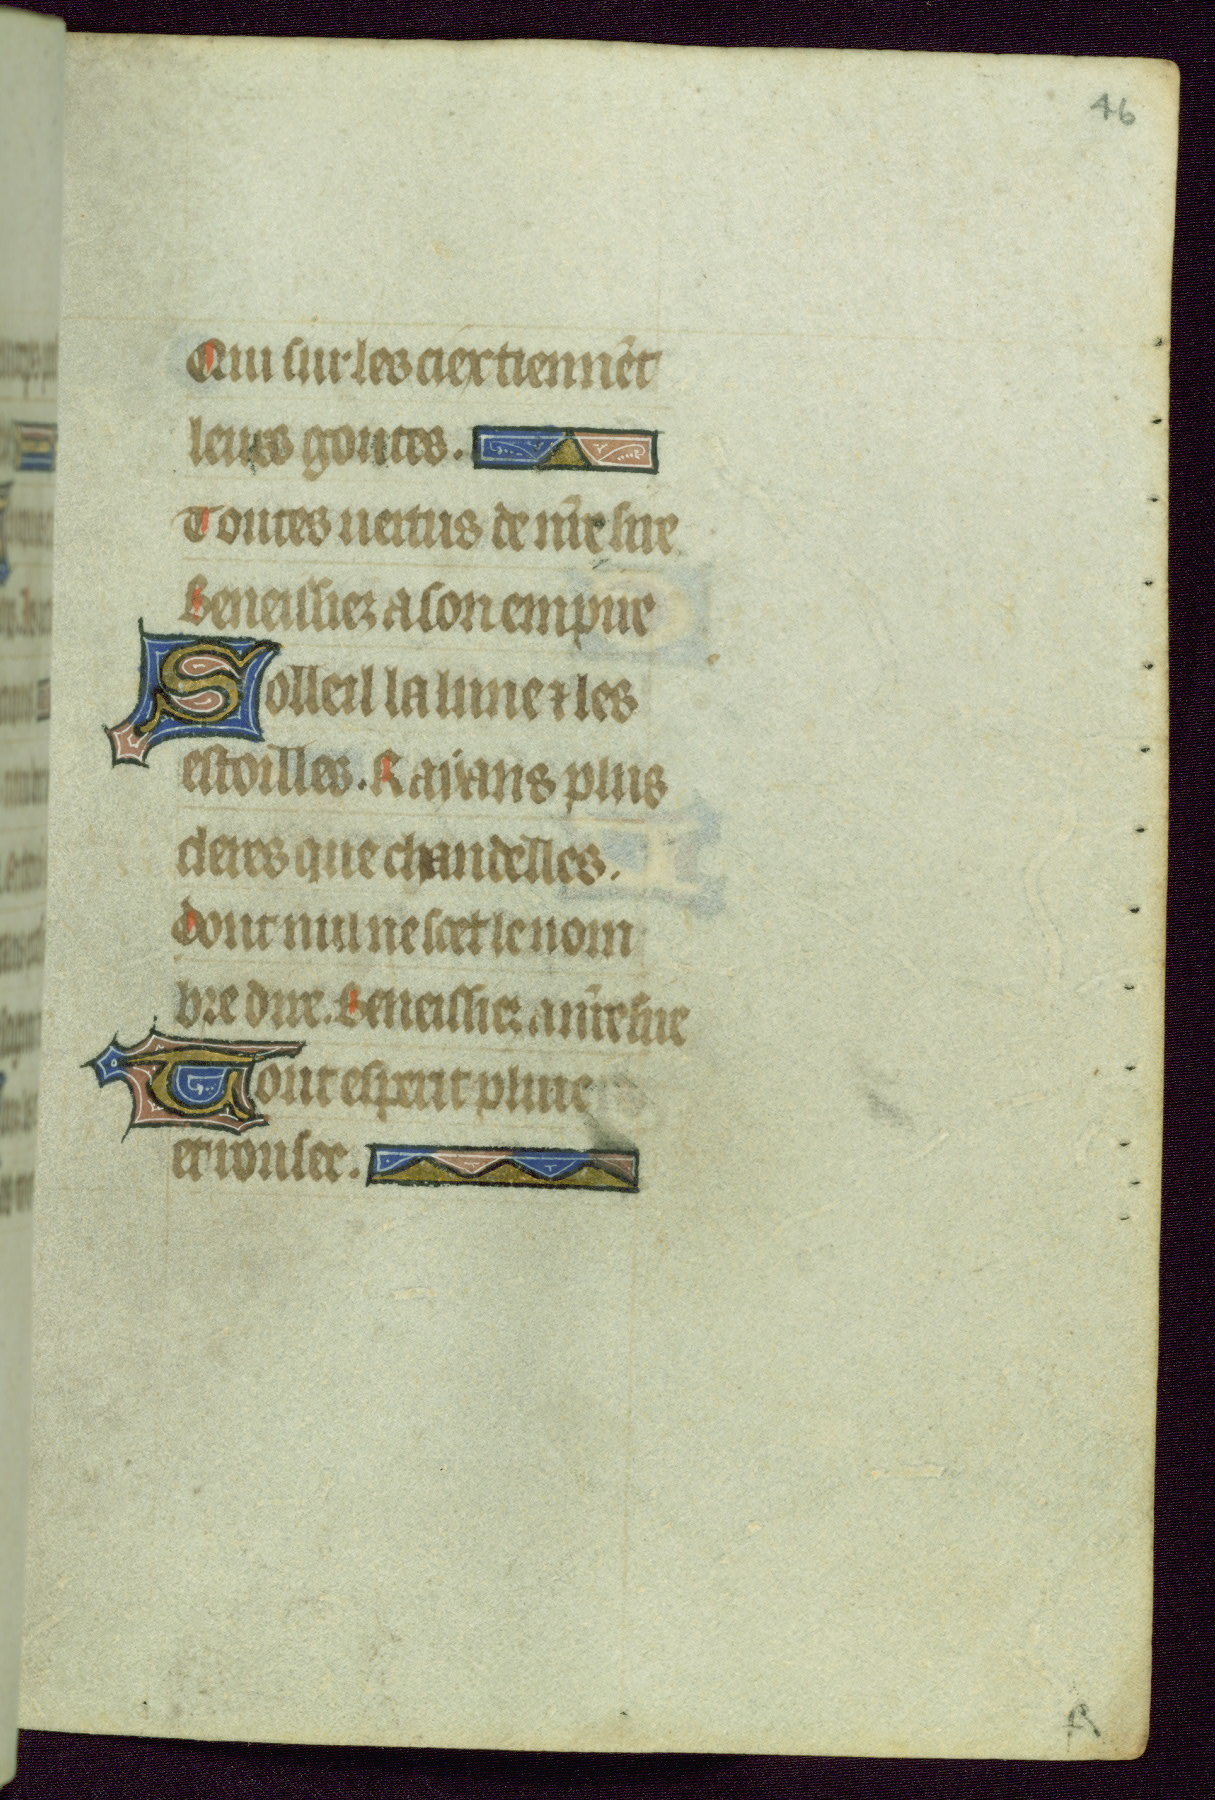 46
Qui sur les ciex tiennēt
leures goutes.
Toutes uertus de nr̄e sire
Beneissiez a son empire
Solleil la lune ⁊ les
estoilles. Raÿans plus
cleres que chandelles.
dont nul ne scet le nom
bre dire. Beneissiez a nr̄e sire
Tout esperit pluie
et rousee.